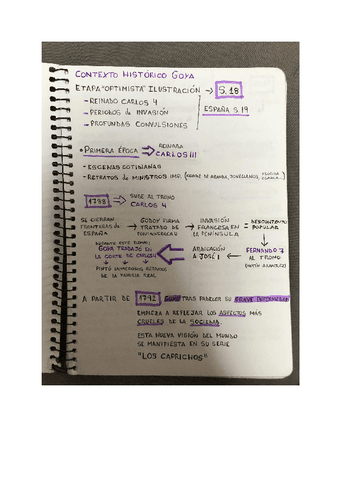 CONTEXTO HISTÓRICO GOYA
ETAPA "OPTIMISTA" ILUSTRACIÓN → S.18
- REINADO CARLOS 4
ESPAÑA S.19
- PERIODOS de INVASIÓN
- PROFUNDAS CONVULSIONES
• PRIMERA ÉPOCA ⇒ REINABA CARLOS III
- ESCENAS COTIDIANAS
- RETRATOS de MINISTROS IMP. (CONDE DE ARANDA, JOVELLANOS,
1788 → SUBE AL TRONO CARLOS 4
SE CIERRAN FRONTERAS de ESPAÑA → GODOY FIRMA TRATADO DE FONTAINEBLEAU → INVASIÓN FRANCESA EN LA PENÍNSULA → DESCONTENTO POPULAR
DURANTE ESTE TIEMPO GOYA TRABAJÓ EN LA CORTE DE CARLOS 4
ABDICACIÓN A JOSÉ I ← FERNANDO 7 AL TRONO
PINTÓ NUMEROSOS RETRATOS DE LA FAMILIA REAL
A PARTIR DE 1792 GOYA TRAS PADECER SU GRAVE ENFERMEDAD
EMPIEZA A REFLEJAR LOS ASPECTOS MÁS
CRUELES DE LA SOCIEDAD
ESTA NUEVA VISIÓN DEL MUNDO
SE MANIFIESTA EN SU SERIE
"LOS CAPRICHOS"